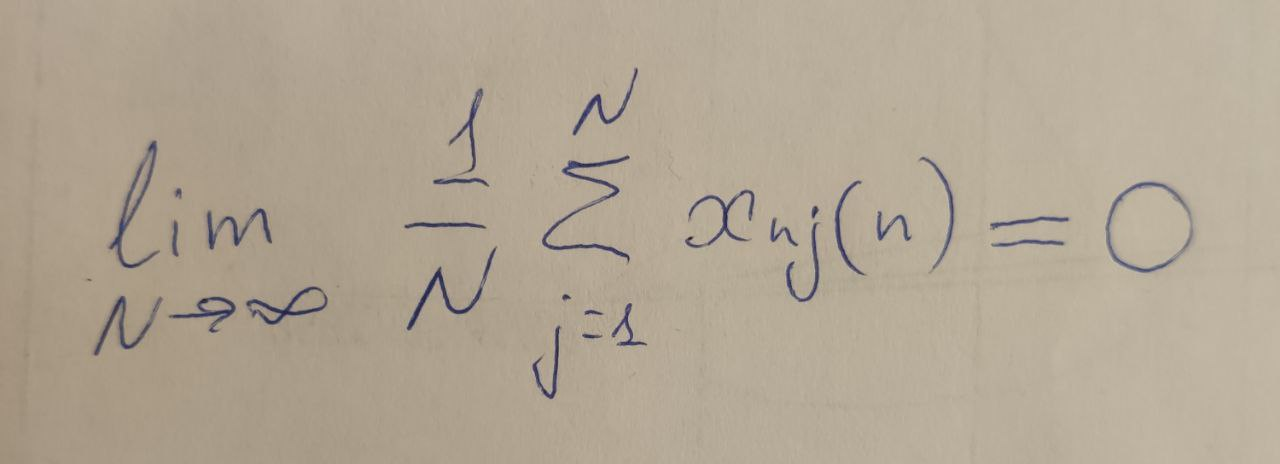 lim N→∞ 1/N ∑ j=1 N x nj(n) = 0